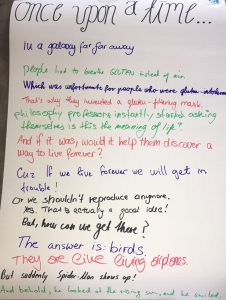 Once upon a time...
in a galaxy far far away
people had to breathe GLUTEN instead of air.
Which was unfortunate for people who were gluten-intolerant
That's why they invented a gluten-filtering mask.
philosophy professors instantly started asking
themselves is this the meaning of life?
And if it was, would it help them discover a
way to live forever?
Cuz if we live forever we will get in
trouble!
Or we shouldn't reproduce anymore.
Yes. That's actually a good idea!
But, how can we get there?
The answer is: birds.
They are like living airplanes.
But suddenly Spider Man shows up!
And behold, he looked at the rising sun, and he smiled.